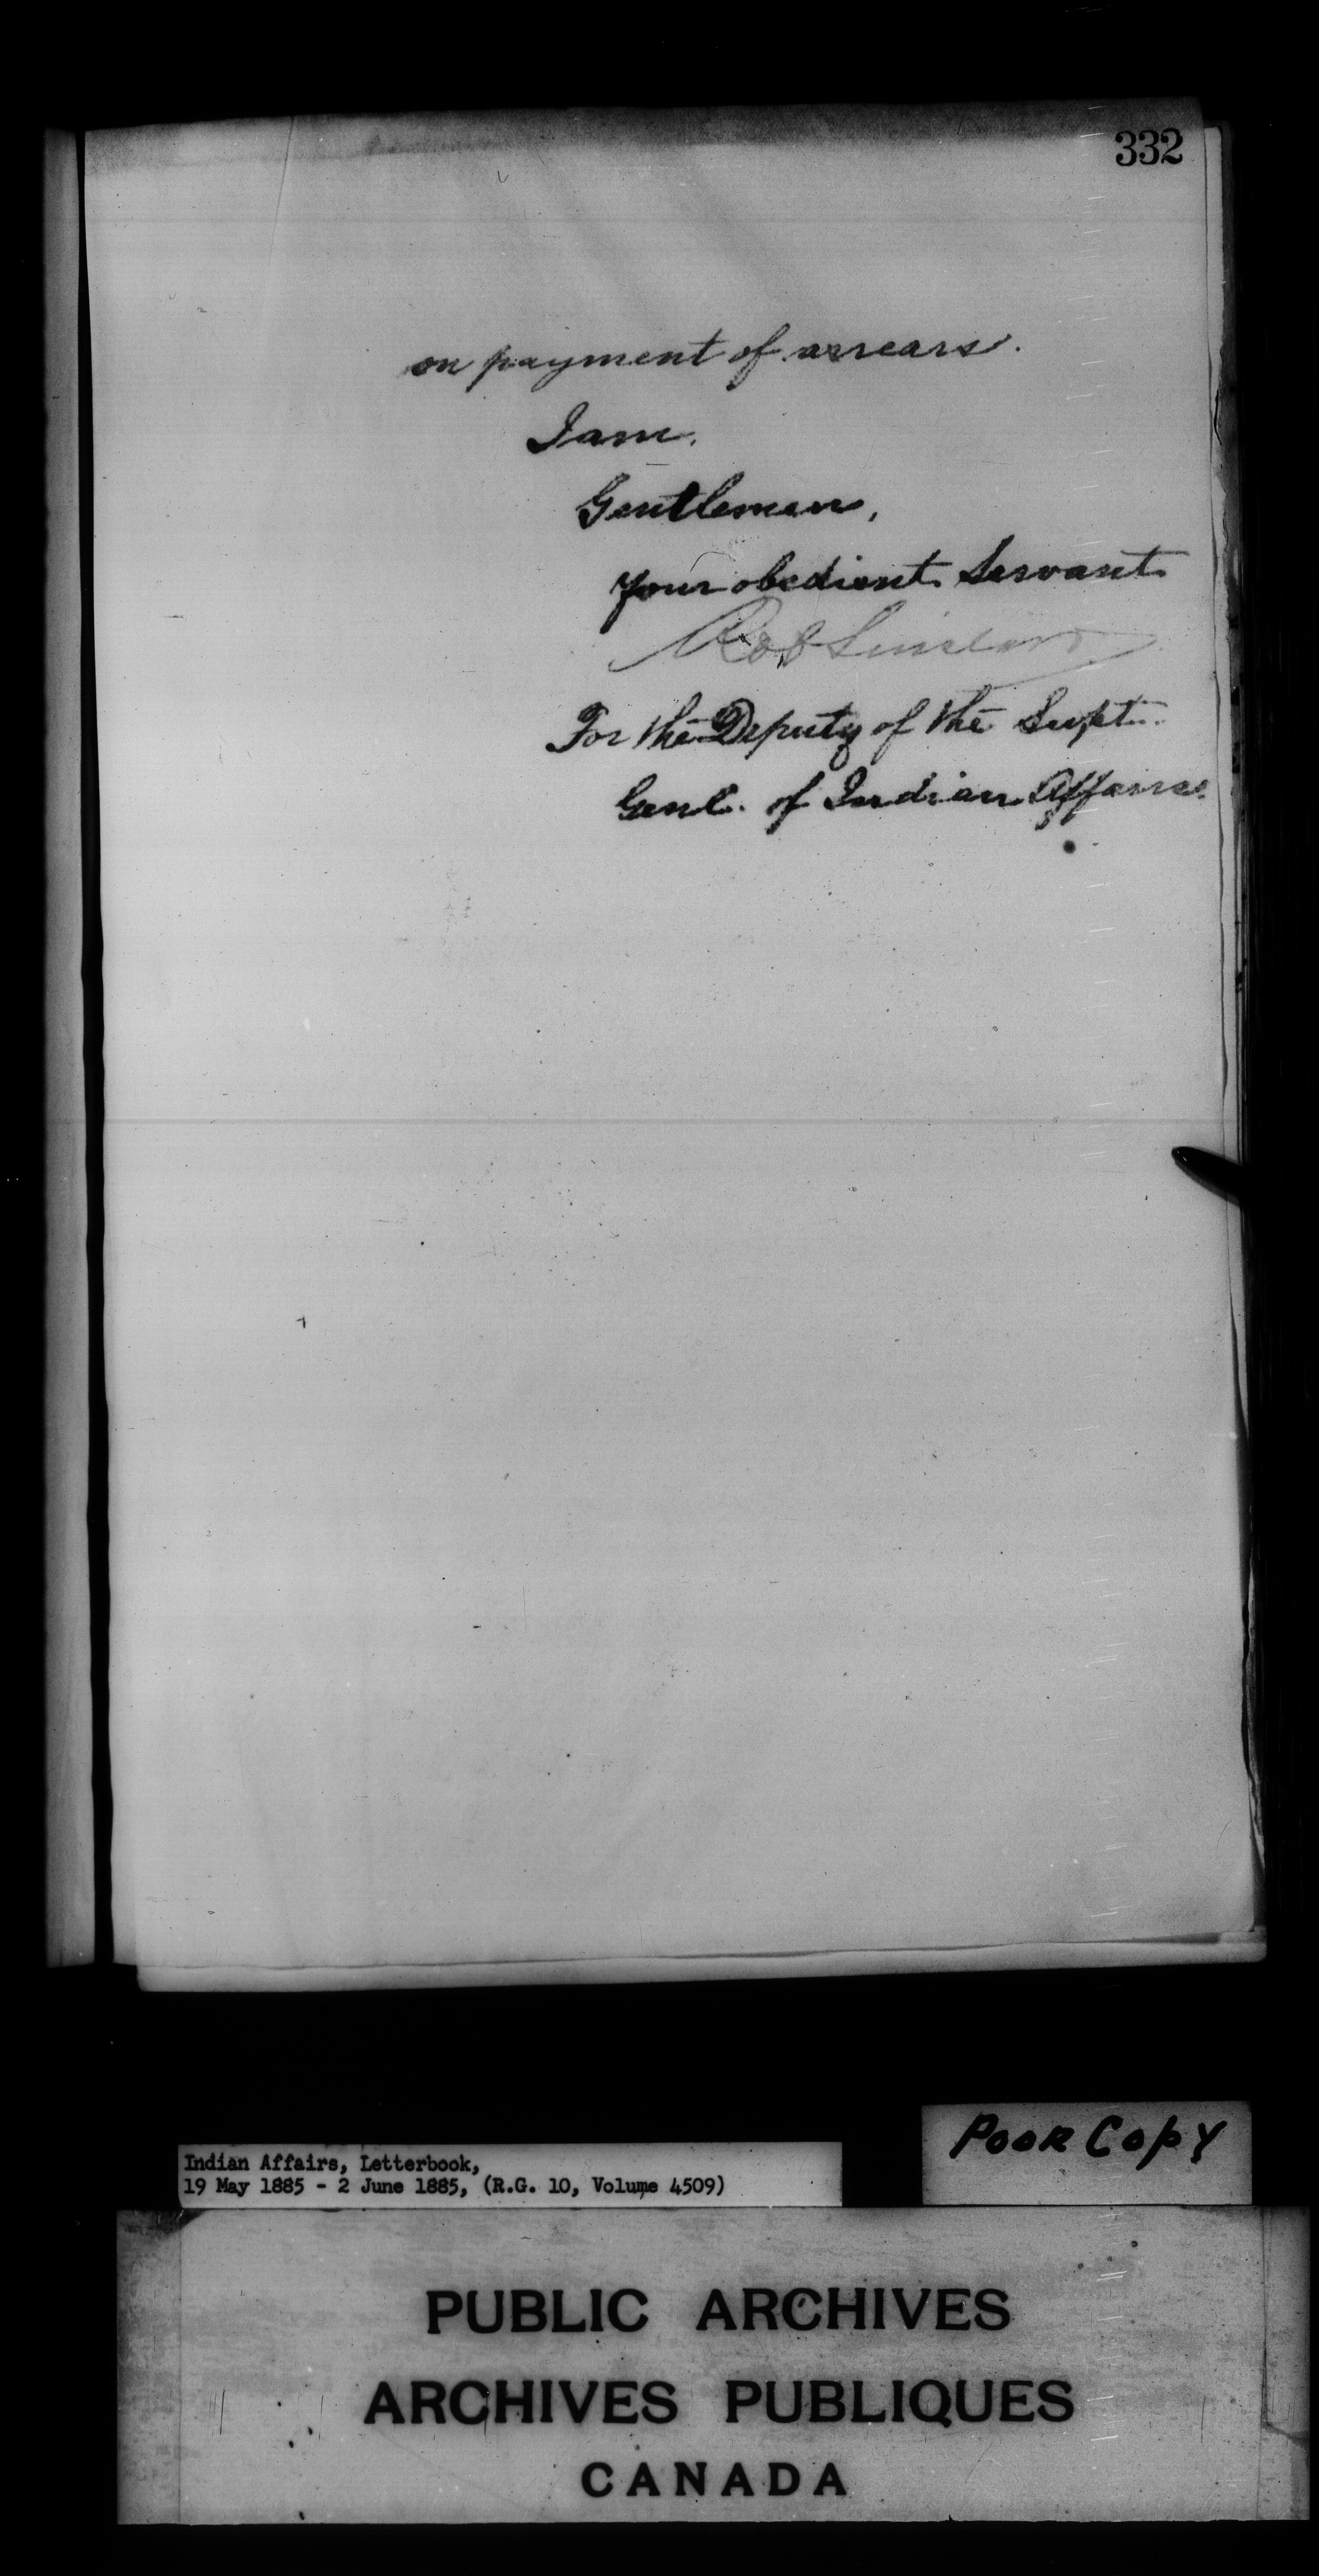 332
on payment of arrears.
I am,
Gentlemen,
Your obedient Servant
Rob Sinclair
For the Deputy of the Supt.
Genl. of Indian Affairs.
Poor Copy
Indian Affairs, Letterbook,
19 May 1885 - 2 June 1885, (R.G. 10, Volume 4509)
PUBLIC ARCHIVES
ARCHIVES PUBLIQUES
CANADA